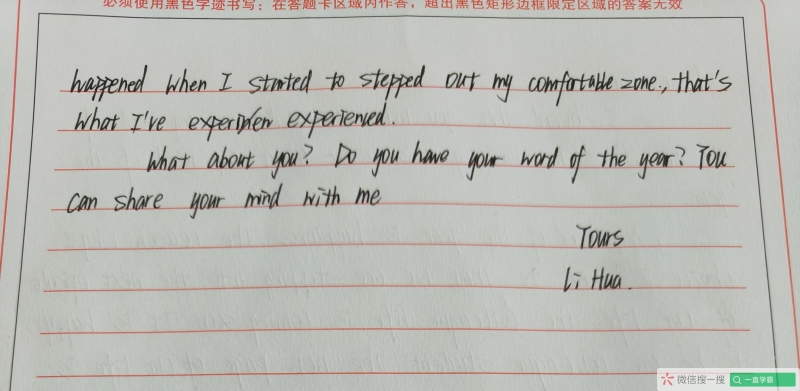 必须使用黑色字迹书写：在答题卡区域内作答，超出黑色矩形边框限定区域的答案无效
happened when I started to stepped out my comfortable zone., that's
what I've experienced.
What about you? Do you have your word of the year? You
can share your mind with me
Yours
Li Hua.
微信搜一搜
一直学霸